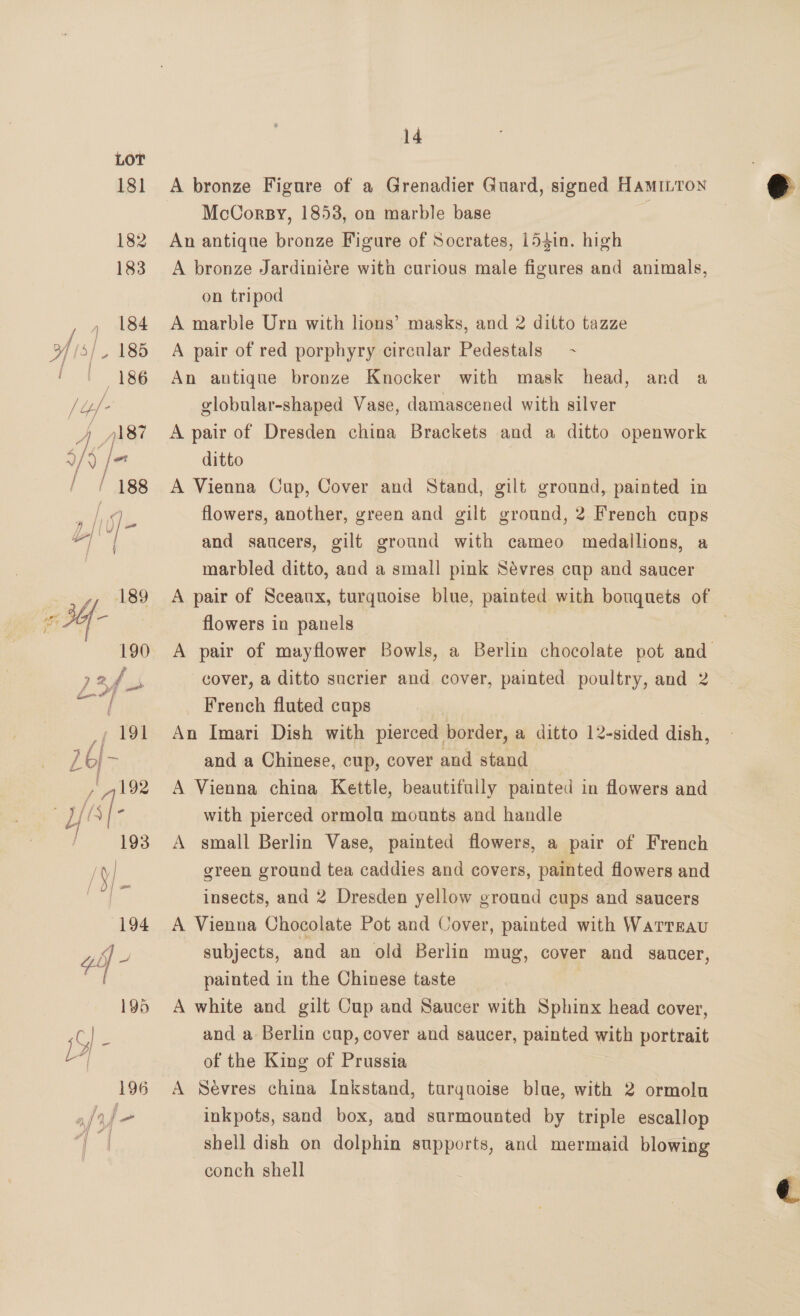 14
LOT
181 A bronze Figure of a Grenadier Guard, signed HAMILTON
McCORBY, 1853, on marble base
182 An antique bronze Figure of Socrates, 15½in. high
183 A bronze Jardiniére with curious male figures and animals,
on tripod
184 A marble Urn with lions' masks, and 2 ditto tazze
185 A pair of red porphyry circular Pedestals
186 An antique bronze Knocker with mask head, and a
globular-shaped Vase, damascened with silver
187 A pair of Dresden china Brackets and a ditto openwork
ditto
188 A Vienna Cup, Cover and Stand, gilt ground, painted in
flowers, another, green and gilt ground, 2 French cups
and saucers, gilt ground with cameo medallions, a
marbled ditto, and a small pink Sèvres cup and saucer
189 A pair of Sceaux, turquoise blue, painted with bouquets of
flowers in panels
190 A pair of mayflower Bowls, a Berlin chocolate pot and
cover, a ditto sucrier and cover, painted poultry, and 2
French fluted cups
191 An Imari Dish with pierced border, a ditto 12-sided dish,
and a Chinese, cup, cover and stand
192 A Vienna china Kettle, beautifully painted in flowers and
with pierced ormolu mounts and handle
193 A small Berlin Vase, painted flowers, a pair of French
green ground tea caddies and covers, painted flowers and
insects, and 2 Dresden yellow ground cups and saucers
194 A Vienna Chocolate Pot and Cover, painted with WATTEAU
subjects, and an old Berlin mug, cover and saucer,
painted in the Chinese taste
195 A white and gilt Cup and Saucer with Sphinx head cover,
and a Berlin cup, cover and saucer, painted with portrait
of the King of Prussia
196 A Sèvres china Inkstand, turquoise blue, with 2 ormolu
inkpots, sand box, and surmounted by triple escallop
shell dish on dolphin supports, and mermaid blowing
conch shell